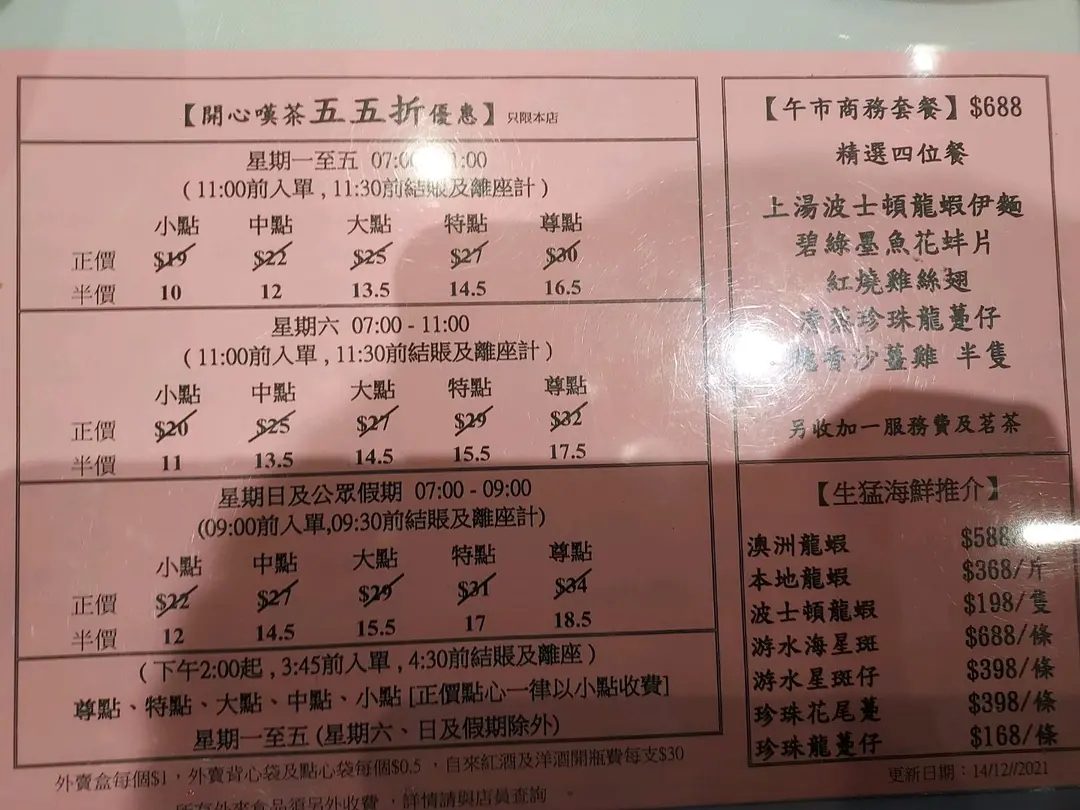 【開心嘆茶五五折優惠】只限本店
星期一至五 07:00
(11:00前入單 , 11:30前結賬及離座計)
小點 中點 大點 特點 尊點
正價 $19 $22 $25 $27 $30
半價 10 12 13.5 14.5 16.5
星期六 07:00 - 11:00
(11:00前入單 , 11:30前結賬及離座計)
小點 中點 大點 特點 尊點
正價 $20 $25 $27 $29 $32
半價 11 13.5 14.5 15.5 17.5
星期日及公眾假期 07:00 - 09:00
(09:00前入單,09:30前結賬及離座計)
小點 中點 大點 特點 尊點
正價 $22 $27 $29 $31 $34
半價 12 14.5 15.5 17 18.5
(下午2:00起 , 3:45前入單 , 4:30前結賬及離座)
尊點、特點、大點、中點、小點 [正價點心一律以小點收費]
星期一至五 (星期六、日及假期除外)
外賣盒每個$1,外賣背心袋及點心袋每個$0.5 ,自來紅酒及洋酒開瓶費每支$30
所有外來食品須另外收費 ,詳情請與店員查詢 。
【午市商務套餐】$688
精選四位餐
上湯波士頓龍蝦伊麵
碧綠墨魚花蚌片
紅燒雞絲翅
珍珠龍躉仔
香沙薑雞 半隻
另收加一服務費及茗茶
【生猛海鮮推介】
澳洲龍蝦 $588
本地龍蝦 $368/斤
波士頓龍蝦 $198/隻
游水海星斑 $688/條
游水星斑仔 $398/條
珍珠花尾躉 $398/條
珍珠龍躉仔 $168/條
更新日期:14/12//2021